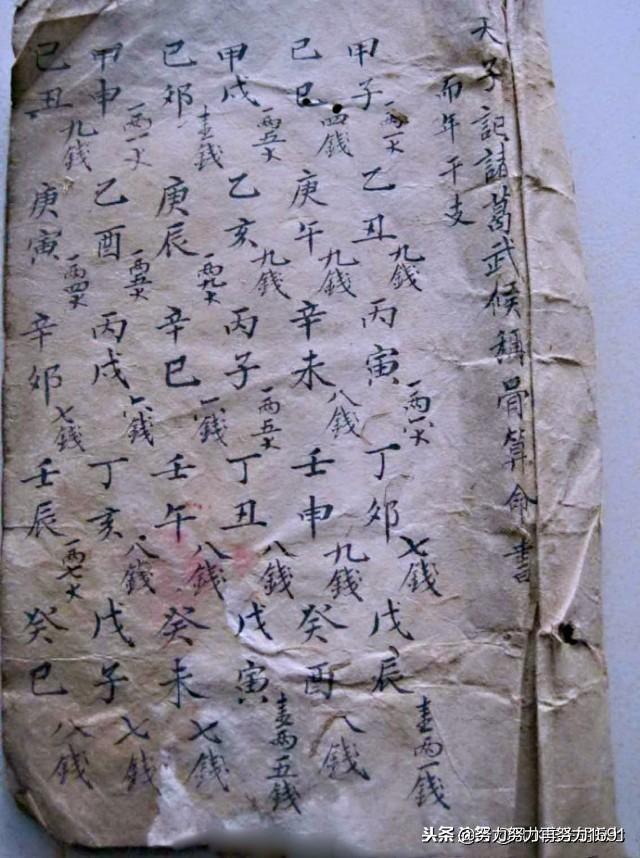 天子記諸葛武候稱骨算命書
而年干支
甲子 一两一 乙丑 九錢 丙寅 一两八 丁卯 七錢 戊辰 壹两一錢
己巳 四錢 庚午 九錢 辛未 八錢 壬申 九錢 癸酉 八錢
甲戌 一两五 乙亥 九錢 丙子 一两五 丁丑 八錢 戊寅 壹两五錢
己卯 錢 庚辰 一两九 辛巳 錢 壬午 八錢 癸未 七錢
甲申 一两一 乙酉 一两五 丙戌 錢 丁亥 八錢 戊子 七錢
己丑 九錢 庚寅 一两四 辛卯 七錢 壬辰 一两七 癸巳 八錢
头条 @努力努力再努力